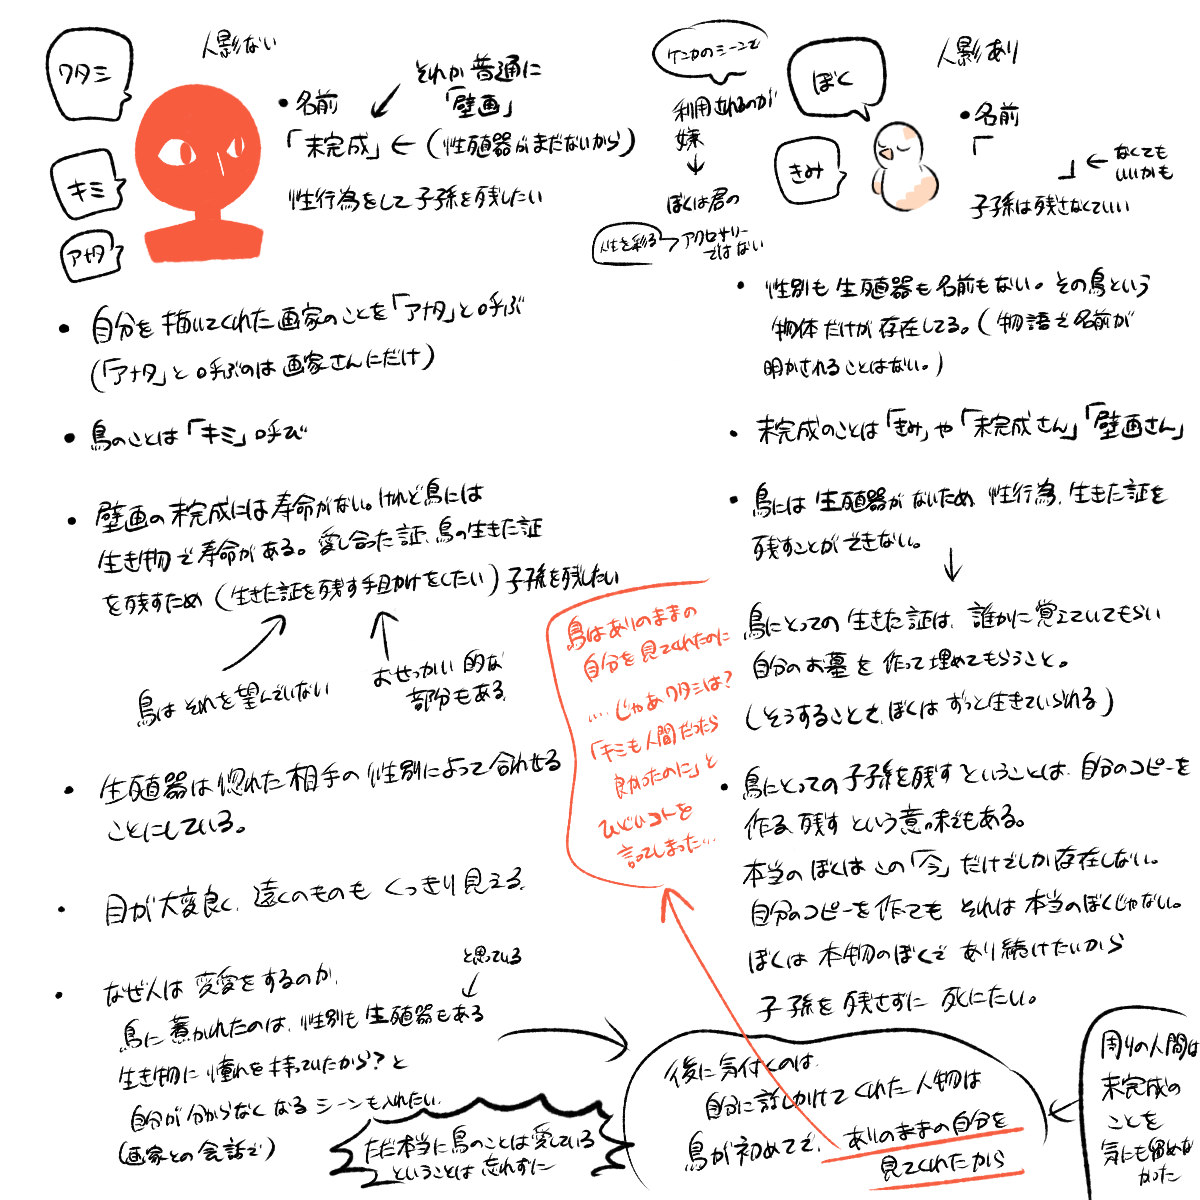 ワタシ
人影ない
キミ
アナタ
・名前
それか普通に
「壁画」
「未完成」←(性殖器がまだないから)
性行為をして子孫を残したい
・自分を描いてくれた画家のことを「アナタ」と呼ぶ
(「アナタ」と呼ぶのは画家さんにだけ)
・鳥のことは「キミ」呼び
・壁画の未完成には寿命がない。けれど鳥には
生き物で寿命がある。愛し合った証、鳥の生きた証
を残すため(生きた証を残す手助けをしたい)子孫を残したい
鳥はそれを望んでいない
おせっかい的な
部分もある
・生殖器は惚れた相手の性別によって合わせる
ことにしている。
・目が大変良く、遠くのものもくっきり見える。
・なぜ人は恋愛をするのか、
と思っている
鳥に惹かれたのは、性別も生殖器もある
生き物に憧れを持っていたから?と
自分が分からなくなるシーンも入れたい。
(画家との会話で)
ただ本当に鳥のことは愛している
ということは忘れずに
ケンカのシーンで
利用されるのが
嫌
ぼくは君の
人生を彩る
アクセサリー
ではない
ぼく
人影あり
きみ
・名前
「
」←なくても
いいかも
子孫は残さなくていい
・性別も生殖器も名前もない。その鳥という
物体だけが存在してる。(物語で名前が
明かされることはない。)
・未完成のことは「きみ」や「未完成さん」「壁画さん」
・鳥には生殖器がないため性行為、生きた証を
残すことができない。
鳥にとっての生きた証は、誰かに覚えていてもらい
自分のお墓を作って埋めてもらうこと。
(そうすることで、ぼくはずっと生きていられる)
・鳥にとっての子孫を残すということは、自分のコピーを
作る、残すという意味でもある。
本当のぼくはこの「今」だけでしか存在しない。
自分のコピーを作ってもそれは本当のぼくじゃない。
ぼくは本物のぼくであり続けたいから
子孫を残さずに死にたい。
鳥はありのままの
自分を見てくれたのに
....じゃあワタシは?
「キミも人間だったら
良かったのに」と
ひどいコトを
言ってしまった...
後に気付くのは、
自分に話しかけてくれた人物は
鳥が初めてで、ありのままの自分を
見てくれたから
周りの人間は
未完成の
ことを
気にも留めな
かった